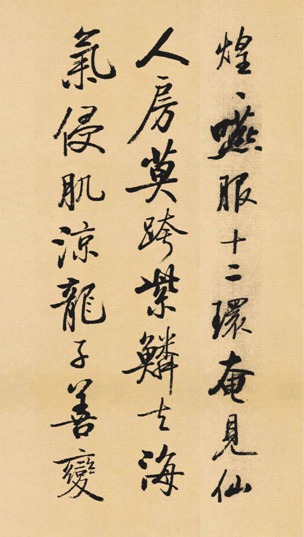 煌〻嚥服十二環奄見仙
人房莫跨紫鱗去海
氣侵肌涼龍子善變